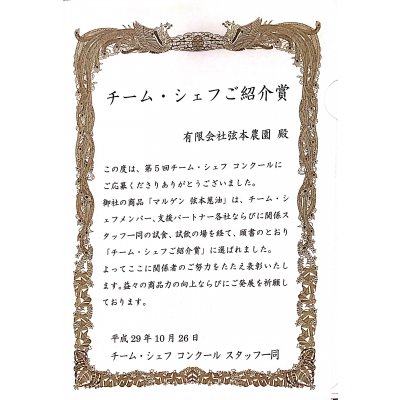 チーム・シェフご紹介賞
有限会社弦本農園 殿
この度は、第5回チーム・シェフ コンクールに
ご応募くださりありがとうございました。
御社の商品「マルゲン 弦本葱油」は、チーム・シ
ェフメンバー、支援パートナー各社ならびに関係ス
タッフ一同の試食、試飲の場を経て、頭書のとおり
「チーム・シェフご紹介賞」に選ばれました。
よってここに関係者のご努力をたたえ表彰いたし
ます。益々の商品力の向上ならびにご発展を祈願し
ております。
平成29年10月26日
チーム・シェフ コンクール スタッフ一同